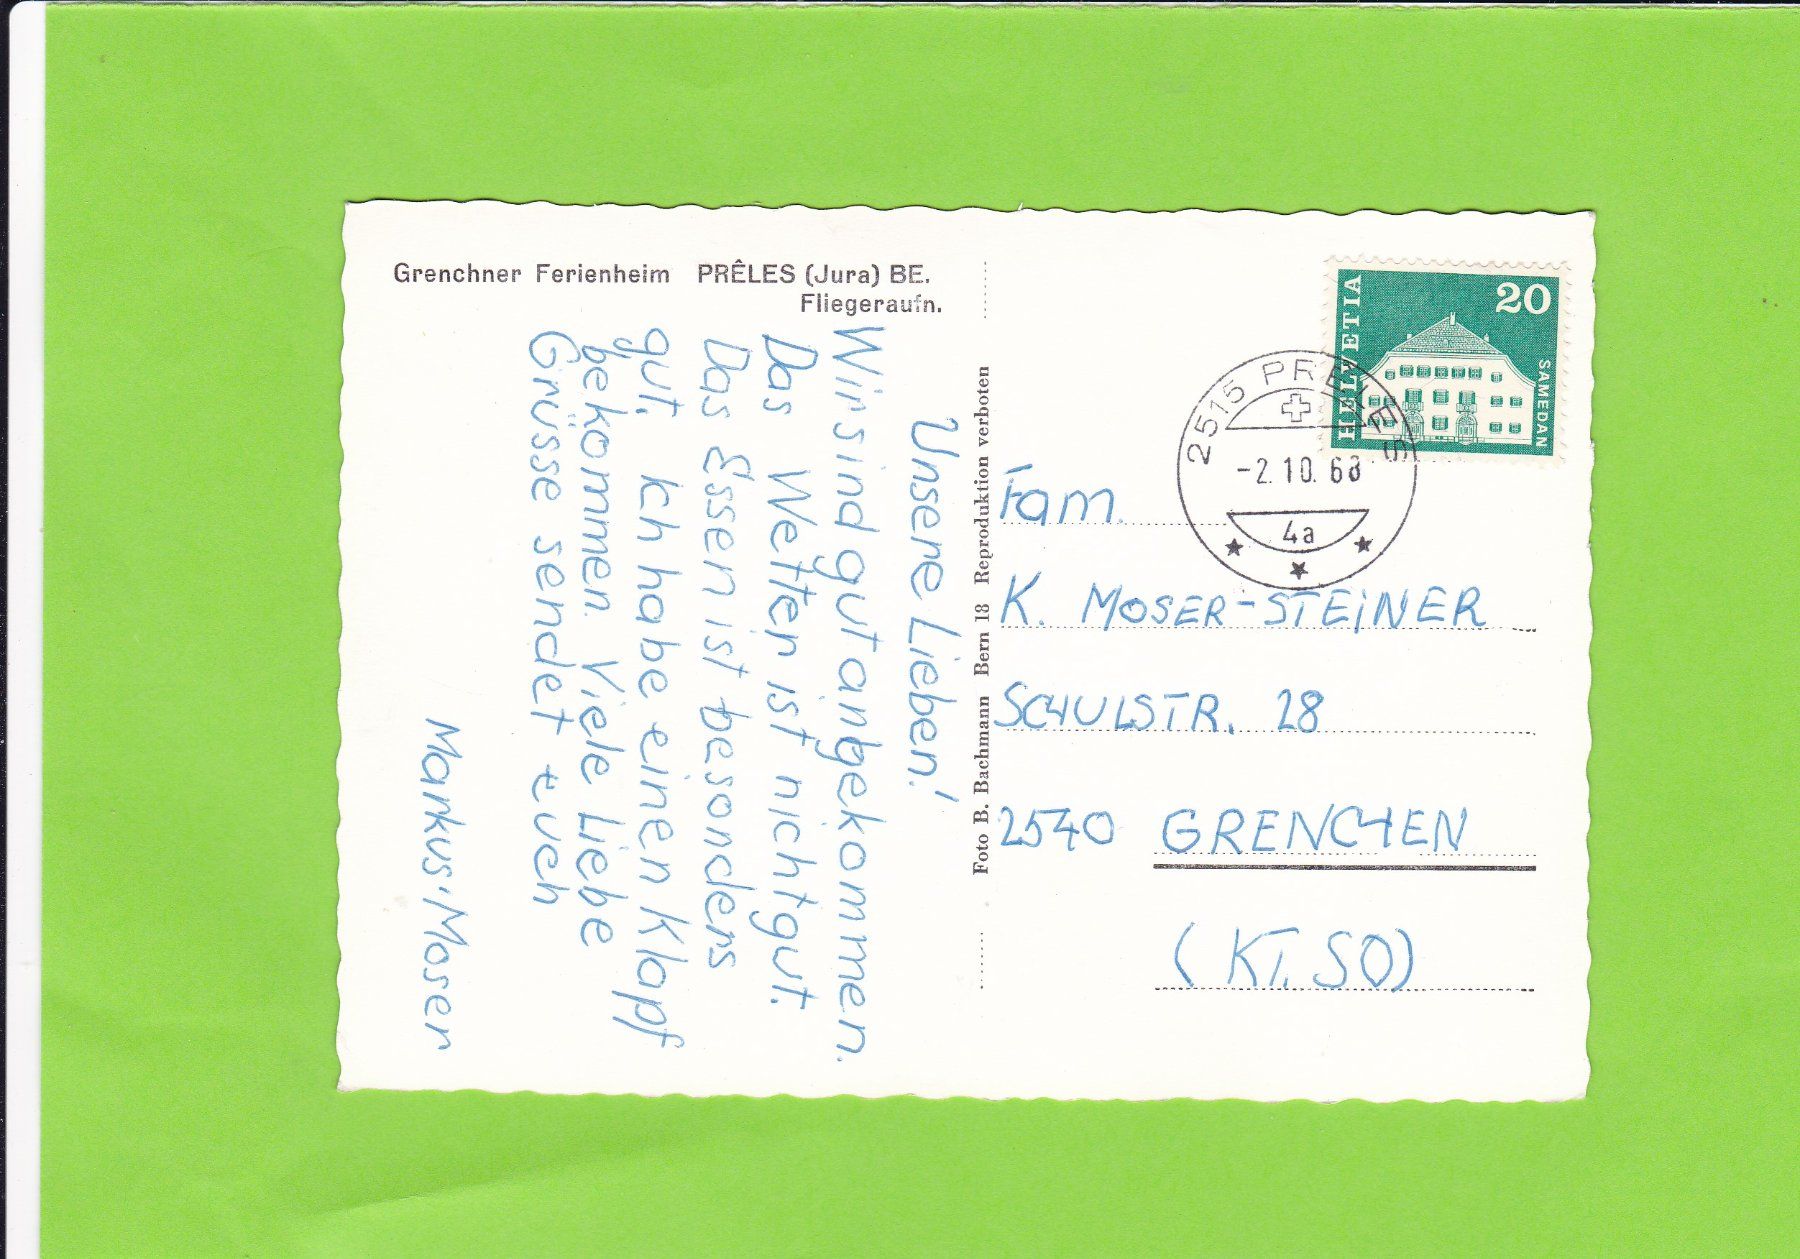 Grenchner Ferienheim PRÊLES (Jura) BE.
Fliegeraufn.
Unsere Lieben!
Wir sind gut angekommen.
Das Wetter ist nicht gut.
Das Essen ist besonders
gut. Ich habe einen Klapf
bekommen. Viele Liebe
Grüsse sendet euch
Markus Moser
Foto B. Bachmann Bern 18 Reproduktion verboten
HELVETIA
20
SAMEDAN
2515 PRELES
-2.10.68
4a
Fam.
K. MOSER-STEINER
SCHULSTR. 28
2540 GRENCHEN
(KT. SO)